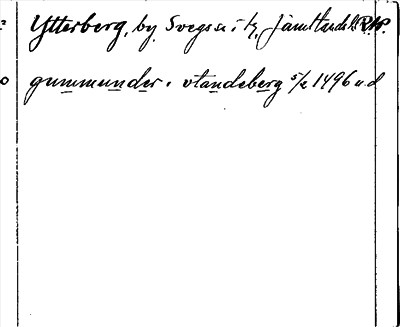 Ytterberg, by Svegs sn i Jämtlands l. RAP.
gummunder i vtandeberg 5/2 1496 n.d